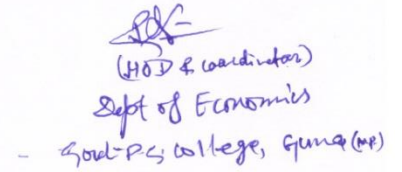 (HOD & coordinator)
Dept of Economics
- Govt-P.G. college, Guna (MP)